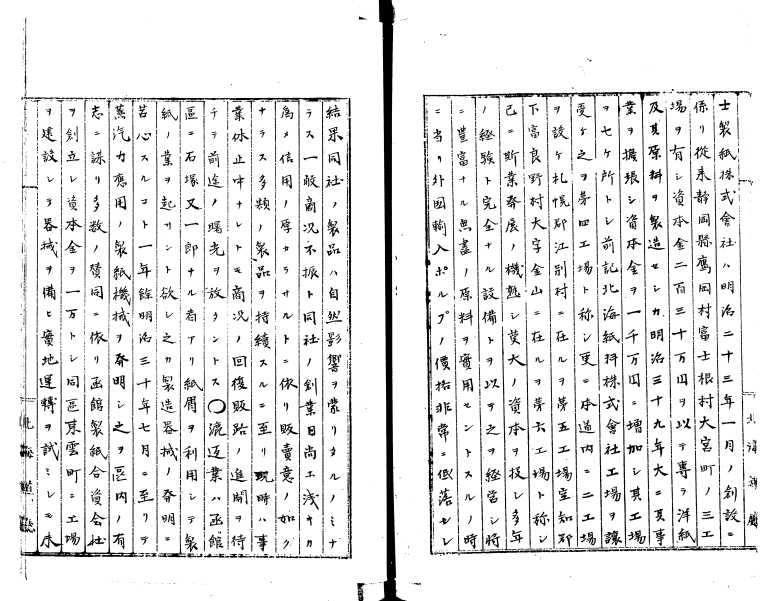 士製紙株式會社ハ明治二十三年一月ノ創設ニ
係リ從来静岡縣鷹岡村富士根村大宮町ノ三工
場ヲ有シ資本金二百三十万円ヲ以テ專ラ洋紙
及其原料ヲ製造セシカ明治三十九年大ニ其事
業ヲ擴張シ資本金ヲ一千万円ニ増加シ其工場
ヲ七ケ所トシ前記北海紙料株式會社工場ヲ讓
受ケ之ヲ第四工場ト称シ更ニ本道内ニ二工場
ヲ設ケ札幌郡江別村ニ在ルヲ第五工場空知郡
下富良野村大字金山ニ在ルヲ第六工場ト称シ
已ニ斯業発展ノ機熟シ莫大ノ資本ヲ投シ多年
ノ経験ト完全ナル設備トヲ以テ之ヲ経営シ将
ニ豊富ナル無盡ノ原料ヲ實用セントスルノ時
ニ当リ外国輸入ポルプノ價格非常ニ低落セシ
結果同社ノ製品ハ自然影響ヲ蒙リタルノミナ
ラス一般商况不振ト同社ノ創業日尚エ浅キカ
為メ信用ノ厚カラサルトニ依リ販賣意ノ如ク
ナラス多類ノ製品ヲ持續スルニ至リ現時ハ事
業休止中ナレトモ商况ノ回復販路ノ進開ヲ待
チテ前途ノ曙光ヲ放タントス○漉返業ハ函館
區ニ石塚又一郎ナル者アリ紙屑ヲ利用シテ製
紙ノ業ヲ起サント欲シ之カ製造器械ノ発明ニ
苦心スルコト一年餘明治三十年七月ニ至リテ
蒸汽力應用ノ製紙機械ヲ発明シ之ヲ區内ノ有
志ニ謀リ多数ノ賛同ニ依リ函館製紙合資会社
ヲ創立シ資本金ヲ一万トシ同區東雲町ニ工場
ヲ建設シテ器械ヲ備ヒ實地運轉ヲ試ミシモ未
北海道廳